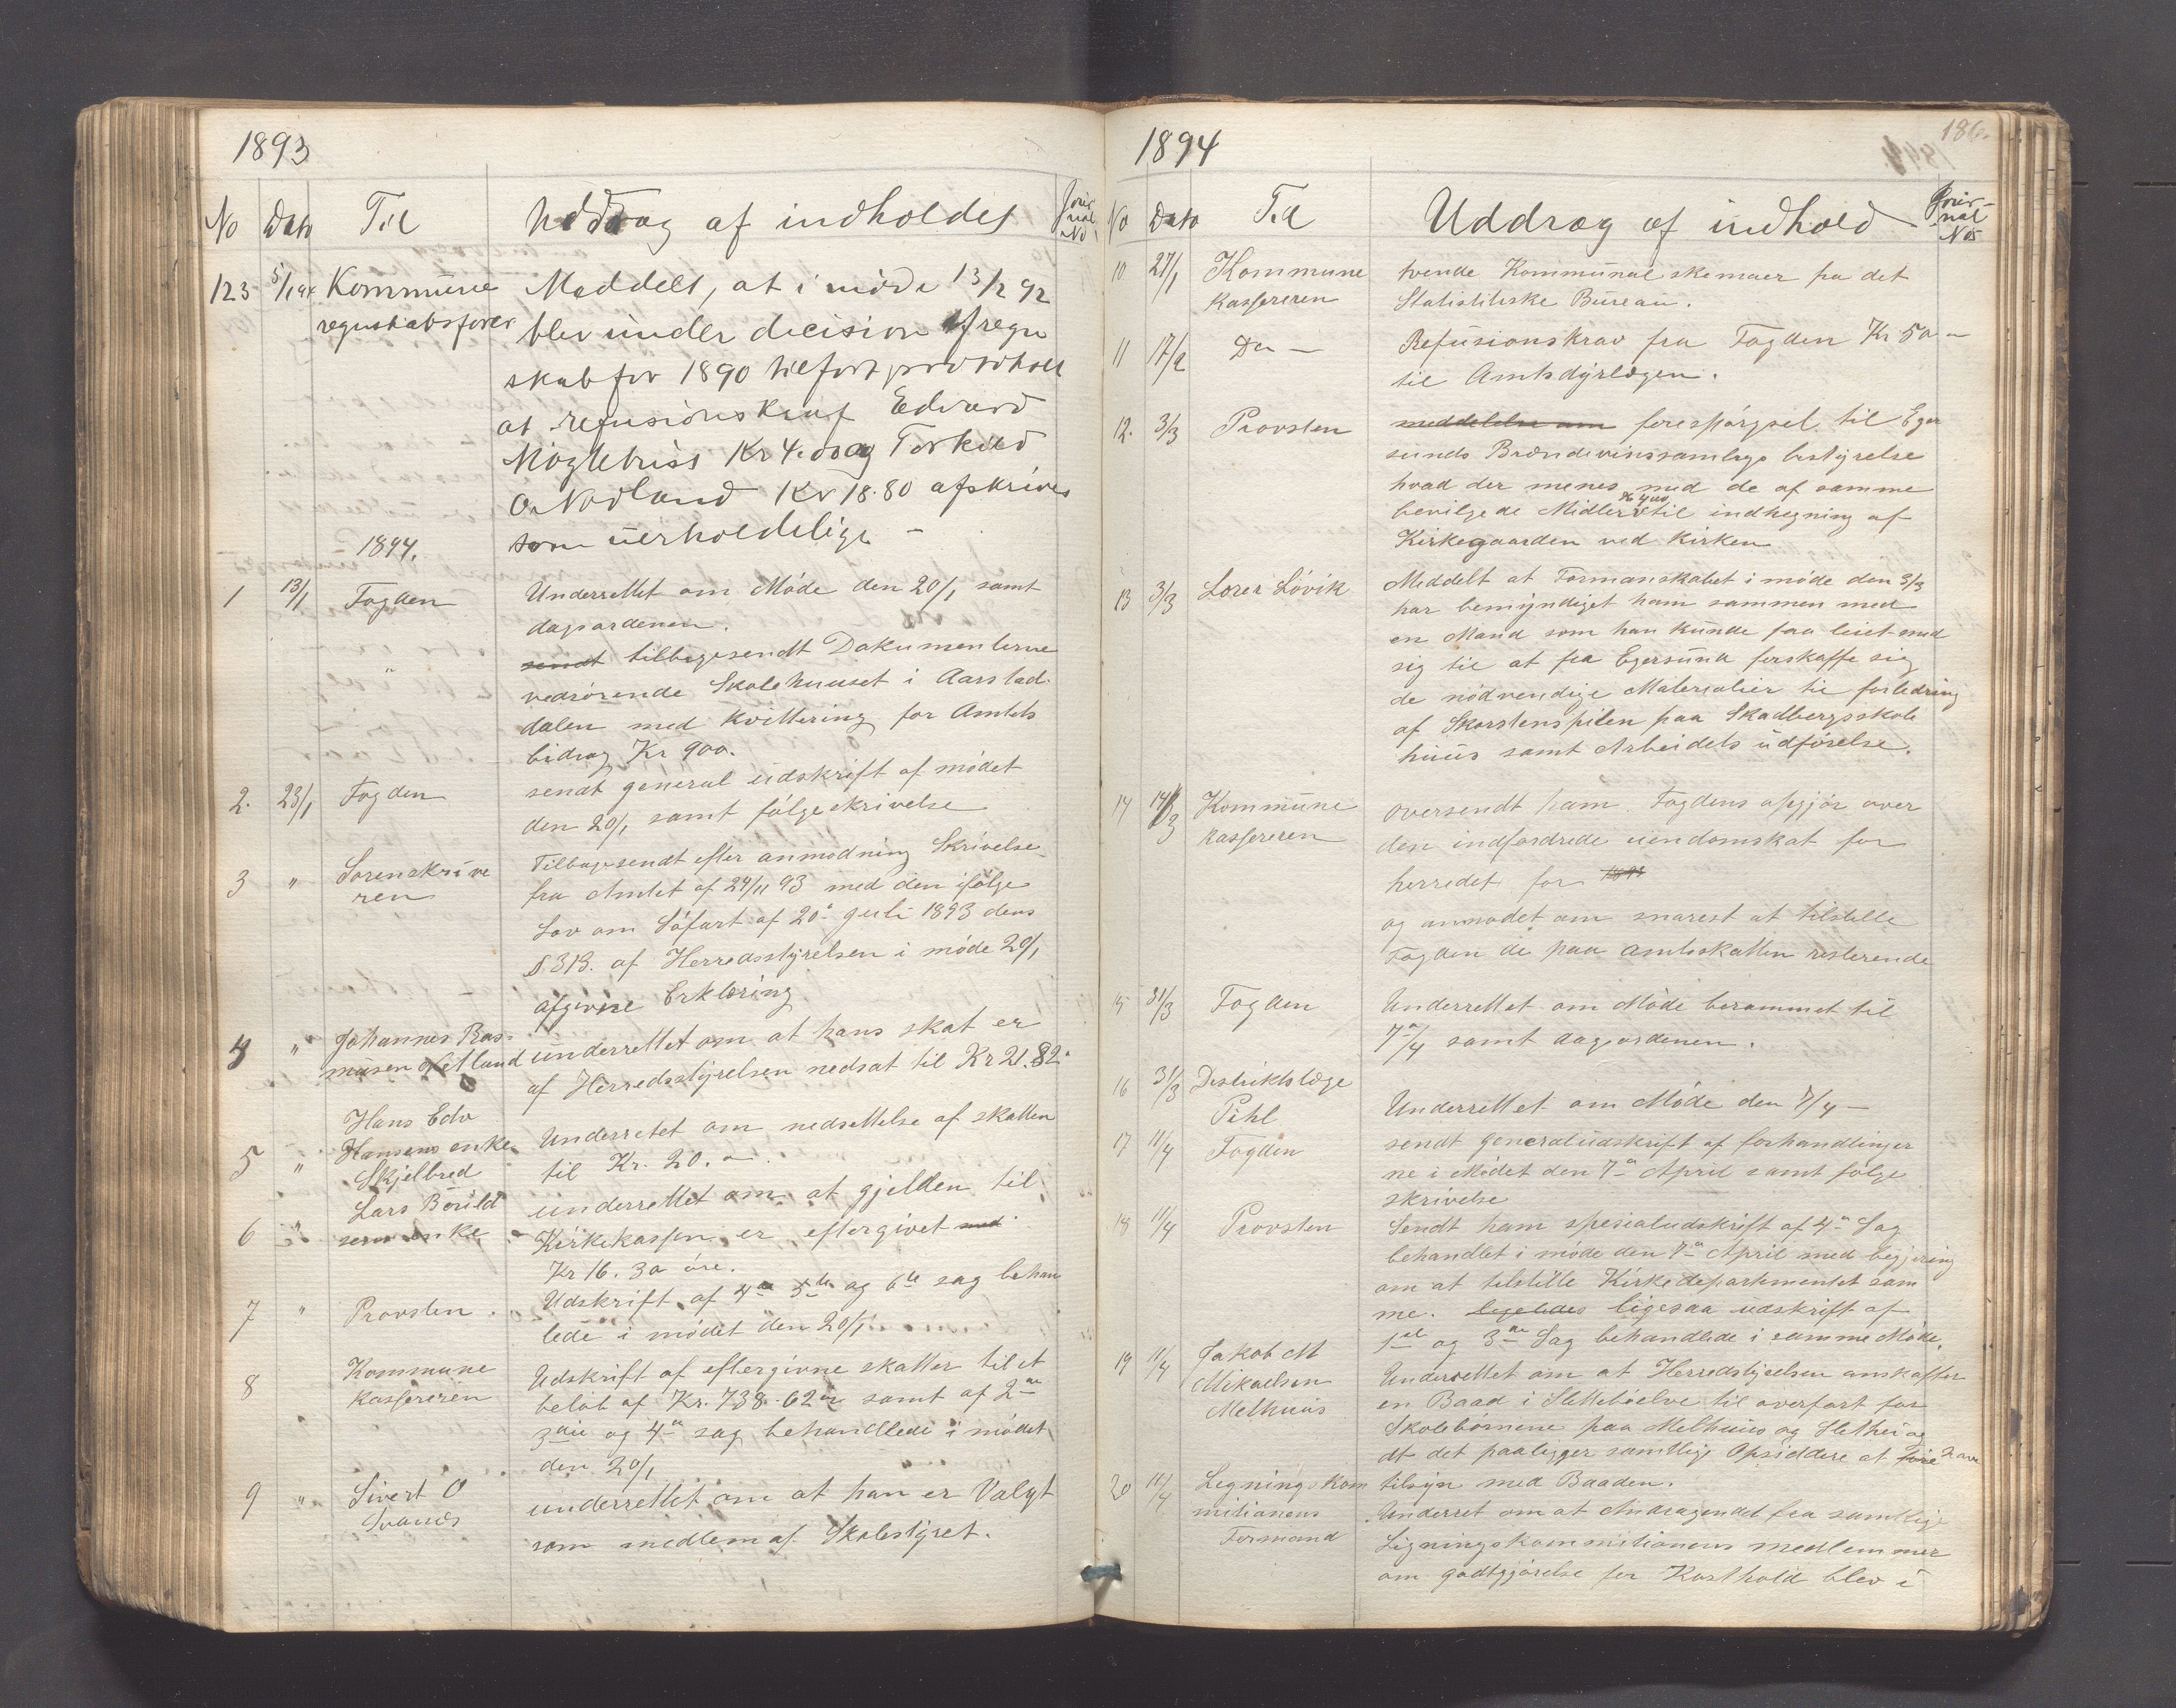 1893
No Dato Til Uddrag af indholdet Jour nal No
123 5/1 94 Kommune Meddelt, at i møde 13/2 92
regnskabsfører blev under decision af regn
skab for 1890 tilført protokoll
at refusionskrav Edvard
Møglebust Kr 4.00 og Torkild
O. Nodland Kr 18.80 afskrives
som uerholdelige -
1894.
1 13/1 Fogden Underrettet om Møde den 20/1 samt
dagsordenen.
" sendt tilbagesendt Dokumenterne
vedrørende Skolehuuset i Aarstad-
dalen med Kvittering for Amtets
bidrag Kr 900.
2. 23/1 Fogden sendt general udskrift af mødet
den 20/1 samt følgeskrivelse
3 " Sorenskrive Tilbagesendt efter anmodning Skrivelse
ren fra Amtet af 24/11 93 med den ifølge
Lov om Søfart af 20de Juli 1893 dens
§ 313. af Herredsstyrelsen i møde 20/1
afgivne Erklæring
4 " Johannes Ras- underrettet om at hans skat er
musen Netland af Herredsstyrelsen nedsat til Kr 21.82.
Hans Edv
5 " Hansens enke Underretet om nedsettelse af skatten
Skjelbred til Kr. 20. -
Lars Bøild underrettet om at gjelden til
6 " sens enke Kirkekassen er eftergivet med
Kr 16. 30 øre.
7 " Provsten. Udskrift af 4de 5te og 6te sag behan
lede i mødet den 20/1
8 Kommune Udskrift af eftergivne skatter til et
kassereren beløb af Kr. 738.62 ør samt af 2den
3die og 4de sag behandlede i mødet
den 20/1
9 " Sivert O underrettet om at han er Valgt
Svanes som medlem af Skolestyret.
1894
186.
No Dato Til Uddrag af indhold Jour- nal No
10 27/1 Kommune tvende Kommunal skemaer fra det
Kassereren Statistitiske Bureau.
11 17/2 Do — Refusionskrav fra Fogden Kr 50 -
til Amtsdyrlægen.
12. 3/3 Provsten meddelelse om forespørgsel til Eger
sunds Brændevinssamlags bestyrelse
hvad der menes med de af samme
Kr 400
bevilgede Midler til indhegning af
Kirkegaarden ved Kirken
13 3/3 Lærer Løvik Meddelt at Formanskabet i møde den 3/3
har bemyndiget ham sammen med
en Mand som han kunde faa leiet med
sig til at fra Egersund forskaffe sig
de nødvendige Materialier til forbedring
af Skorstenspiben paa Skadbergsskole
huus samt Arbeidets udførelse.
14 14/3 Kommune oversendt ham Fogdens opgjør over
kassereren den indfordrede eiendomskat for
herredet for 1893
og anmodet om snarest at tilstille
Fogden de paa amtsskatten resterende
15 31/3 Fogden Underrettet om Møde berammet til
7de/4 samt dagsordenen.
16 31/3 Distriktslæge
Pihl Underrettet om Møde den 7/4 —
17 11/4 Fogden sendt generaludskrift af forhandlinger
ne i Mødet den 7de April samt følge
skrivelse
18 11/4 Provsten Sendt ham spesialudskrift af 4de Sag
behandlet i møde den 7de April med begjering
om at tilstille Kirkedepartementet sam
me. ligeledes ligesaa udskrift af
1ste og 3die Sag behandlede i samme Møde.
19 11/4 Jakob M Underrettet om at Herredstyrelsen anskaffer
Mikaelsen en Baad i Slettebøelve til overfart for
Melhuus Skolebørnene paa Melhuus og Slethei og
at det paalegger samtlige Opsiddere at føre have
tilsyn med Baaden.
20 11/4 Legningskom Underret om at Andragendet fra samtlige
mitionens Ligningskommitionens medlemmer
Formand om godtgjørelse for Kosthold blev i